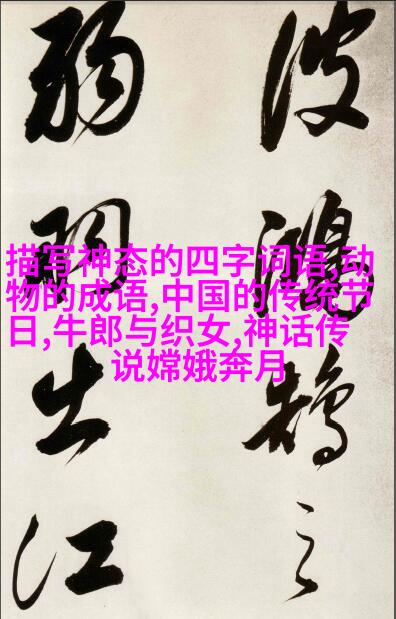 波鴻鵠之
弱羽出江
描写神态的四字词语,动
物的成语,中国的传统节
日,牛郎与织女,神话传
说嫦娥奔月